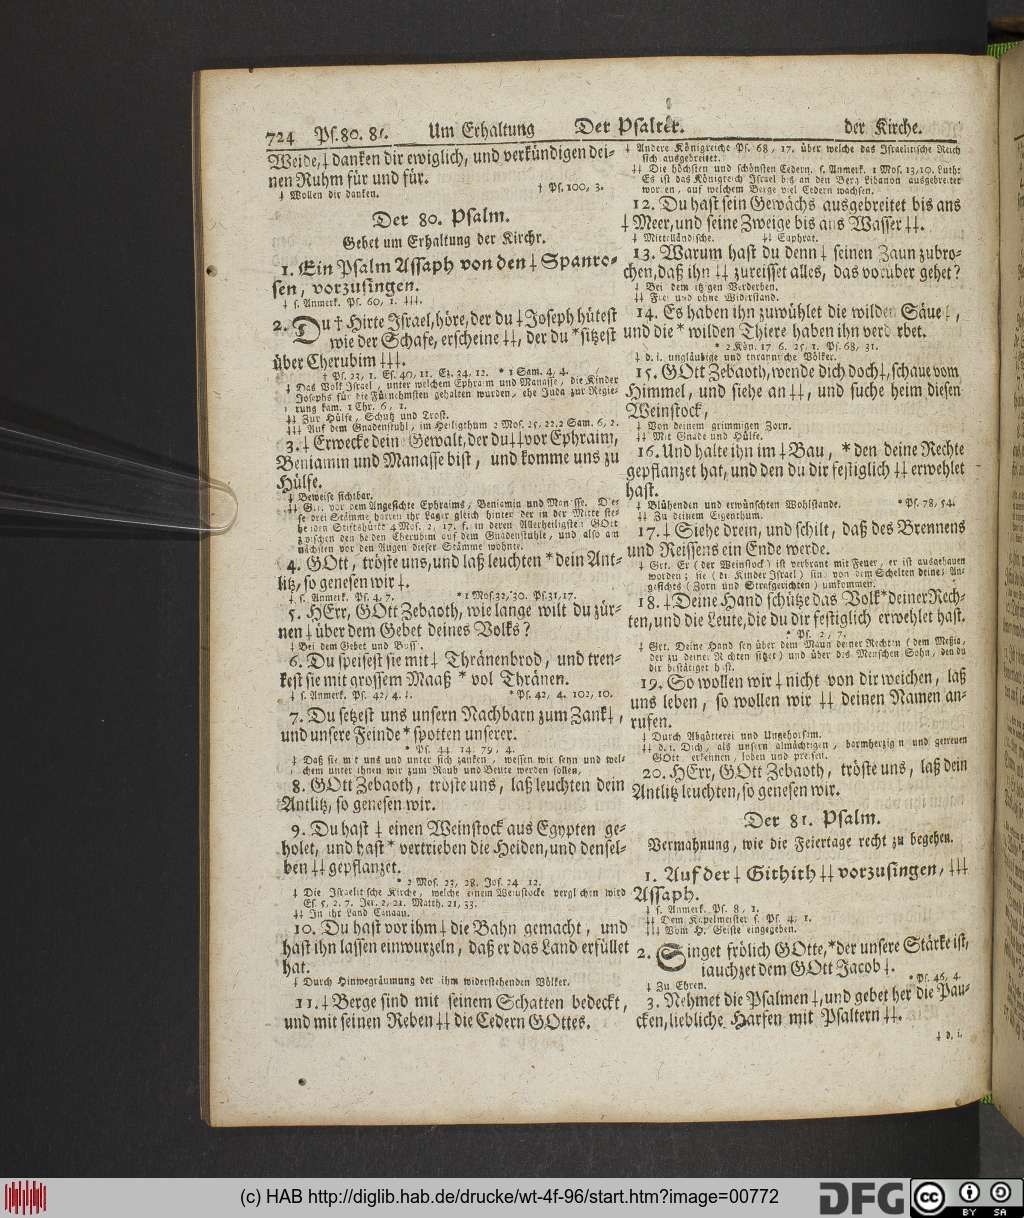 724 Ps. 80. 81. Um Erhaltung Der Psalter. der Kirche.
Weide, ‡ danken dir ewiglich, und verkündigen dei-
nen Ruhm für und für. † Ps. 100, 3.
‡ Wollen dir danken.
Der 80. Psalm.
Gebet um Erhaltung der Kirchr.
1. Ein Psalm Assaph von den ‡ Spanro-
sen, vorzusingen.
‡ s. Anmerk. Ps. 60, 1. ‡‡‡.
2. Du † Hirte Israel, höre, der du ‡ Joseph hütest
wie der Schafe, erscheine ‡‡, der du * sitzest
über Cherubim ‡‡‡.
† Ps. 23, 1. Es. 40, 11. Ez. 34. 12. * 1 Sam. 4, 4.
‡ Das Volk Israel, unter welchem Ephraim und Manasse, die Kinder
Josephs für die Fürnehmsten gehalten wurden, ehe Juda zur Regie-
rung kam. 1 Chr. 6, 1.
‡‡ Zur Hülfe, Schutz und Trost.
‡‡‡ Auf dem Gnadenstuhl, im Heiligthum 2 Mos. 25, 22. 2 Sam. 6, 2.
3. ‡ Erwecke dein Gewalt, der du ‡‡ vor Ephraim,
Benjamin und Manasse bist, und komme uns zu
Hülfe.
‡ Beweise sichtbar.
‡‡ vor dem Angesichte Ephraims, Benjamin und Manasse. Die-
se drei Stämme hatten ihr Lager gleich hinter der in der Mitte ste-
henden Stiftshütte 4 Mos. 2, 17. f. in deren Allerheiligsten GOtt
zwischen den beiden Cherubim auf dem Gnadenstuhle, und also am
nächsten vor den Augen dieser Stämme wohnte.
4. GOtt, tröste uns, und laß leuchten * dein Ant-
litz, so genesen wir ‡.
‡ s. Anmerk. Ps. 4, 7. * 4 Mos. 6, 25. Ps. 31, 17.
5. HErr, GOtt Zebaoth, wie lange wilt du zür-
nen ‡ über dem Gebet deines Volks?
‡ Bei dem Gebet und
6. Du speisest sie mit ‡ Thränenbrod, und tren-
kest sie mit grossem Maaß * vol Thränen.
‡ s. Anmerk. Ps. 42, 4. * Ps. 42, 4. 102, 10.
7. Du setzest uns unsern Nachbarn zum Zank ‡,
und unsere Feinde * spotten unserer.
* Ps. 44, 14. 79, 4.
‡ Daß sie mit uns und unter sich zanken, wessen wir seyn und wel-
chem unter ihnen wir zum Raub und Beute werden sollen.
8. GOtt Zebaoth, tröste uns, laß leuchten dein
Antlitz, so genesen wir.
9. Du hast ‡ einen Weinstock aus Egypten ge-
holet, und hast * vertrieben die Heiden, und densel-
ben ‡‡ gepflanzet.
* 2 Mos. 23, 28. Jos. 24, 12.
‡ Die Israelitische Kirche, welche einem Weinstocke verglichen wird
Es. 5, 2. 7. Jer. 2, 21. Matth. 21, 33.
‡‡ In ihr Land Canaan.
10. Du hast vor ihm ‡ die Bahn gemacht, und
hast ihn lassen einwurzeln, daß er das Land erfüllet
hat.
‡ Durch Hinwegräumung der ihm widerstehenden Völker.
11. ‡ Berge sind mit seinem Schatten bedeckt,
und mit seinen Reben ‡‡ die Cedern GOttes.
‡ Andere Königreiche Ps. 68, 17. über welche das Israelitische Reich
sich ausgebreitet.
‡‡ Die höchsten und schönsten Cedern. s. Anmerk. 1 Mos. 13, 10. Luth:
Es ist das Königreich Israel bis an den Berg Libanon ausgebreitet
worden, auf welchem Berge viel Cedern wachsen.
12. Du hast sein Gewächs ausgebreitet bis ans
‡ Meer, und seine Zweige bis ans Wasser ‡‡.
‡ Mittelländische. ‡‡ Euphrat.
13. Warum hast du denn ‡ seinen Zaun zubro-
chen, daß ihn ‡‡ zureisset alles, das vorüber gehet?
‡ Bei dem itzigen Verderben.
‡‡ Frei und ohne Widerstand.
14. Es haben ihn zuwühlet die wilden Säue ‡,
und die * wilden Thiere haben ihn verderbet.
* 2 Kön. 17, 6. 25, 1. Ps. 68, 31.
‡ d. i. ungläubige und tyrannische Völker.
15. GOtt Zebaoth, wende dich doch ‡, schaue vom
Himmel, und siehe an ‡‡, und suche heim diesen
Weinstock,
‡ Von deinem grimmigen Zorn.
‡‡ Mit Gnade und Hülfe.
16. Und halte ihn im ‡ Bau, * den deine Rechte
gepflanzet hat, und den du dir festiglich ‡‡ erwehlet
hast.
‡ Blühenden und erwünschten Wohlstande. * Ps. 78, 54.
‡‡ Zu deinem Eigenthum.
17. ‡ Siehe drein, und schilt, daß des Brennens
und Reissens ein Ende werde.
‡ Grt. Er (der Weinstock) ist verbrant mit Feuer, er ist ausgehauen
worden; sie (die Kinder Israel) sind von dem Schelten deines An-
gesichts (Zorn und Strafgerichten) umkommen.
18. ‡ Deine Hand schütze das Volk * deiner Rech-
ten, und die Leute, die du dir festiglich erwehlet hast.
* Ps. 2, 7.
‡ Grt. Deine Hand sey über dem Mann deiner Rechten (dem Meßia,
der zu deiner Rechten sitzet) und über des Menschen Sohn, den du
dir bestätiget hast.
19. So wollen wir ‡ nicht von dir weichen, laß
uns leben, so wollen wir ‡‡ deinen Namen an-
rufen.
‡ Durch Abgötterei und Ungehorsam.
‡‡ d. i. Dich, als unsern almächtigen, barmherzigen und getreuen
GOtt erkennen, loben und preisen.
20. HErr, GOtt Zebaoth, tröste uns, laß dein
Antlitz leuchten, so genesen wir.
Der 81. Psalm.
Vermahnung, wie die Feiertage recht zu begehen.
1. Auf der ‡ Githith ‡‡ vorzusingen, ‡‡‡
Assaph.
‡ s. Anmerk. Ps. 8, 1.
‡‡ Dem Kapelmeister s. Ps. 4, 1.
‡‡‡ Vom H. Geiste eingegeben.
2. Singet frölich GOtte, * der unsere Stärke ist,
jauchzet dem GOtt Jacob ‡.
‡ Zu Ehren. * Ps. 46, 4.
3. Nehmet die Psalmen ‡, und gebet her die Pau-
cken, liebliche Harfen mit Psaltern ‡‡.
‡ d. i.
(c) HAB http://diglib.hab.de/drucke/wt-4f-96/start.htm?image=00772
DFG
cc
BY SA